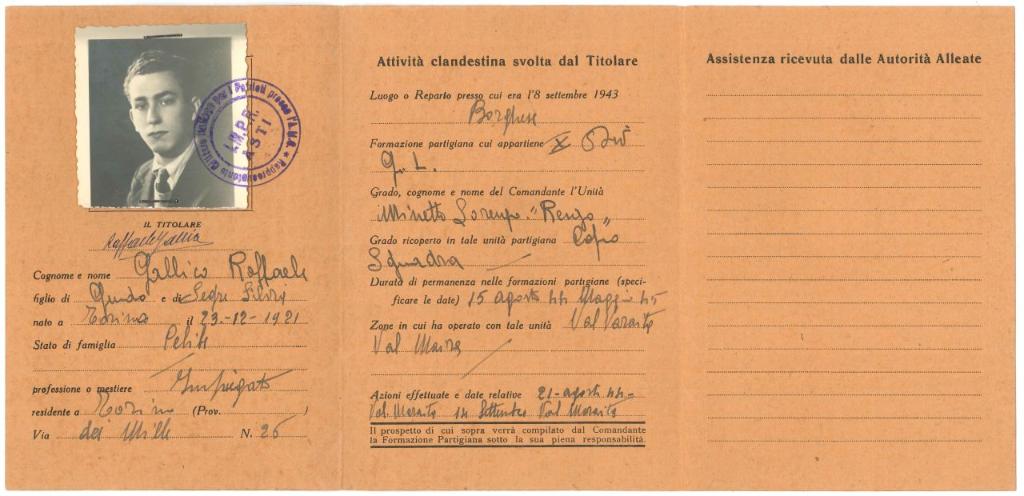 Rappresentante Militare Patrioti presso l'A.M.G.
I.M.P.R.
ASTI
IL TITOLARE
Raffaele Gallico
Cognome e nome Gallico Raffaele
figlio di Guido e di Segre Silvia
nato a Torino il 23-12-1921
Stato di famiglia Celibe
professione o mestiere Impiegato
residente a Torino (Prov. )
Via dei Mille N. 26
Attività clandestina svolta dal Titolare
Luogo o Reparto presso cui era l'8 settembre 1943
Borghese
Formazione partigiana cui appartiene X
G. L.
Grado, cognome e nome del Comandante l'Unità
Minetto Lorenzo "Renzo"
Grado ricoperto in tale unità partigiana Capo
Squadra
Durata di permanenza nelle formazioni partigiane (speci-
ficare le date) 15 agosto 44 Maggio 45
Zone in cui ha operato con tale unità Val Varaita
Val Maira
Azioni effettuate e date relative 21-agosto 44-
Val Varaita 14 Settembre Val Varaita
Il prospetto di cui sopra verrà compilato dal Comandante
la Formazione Partigiana sotto la sua piena responsabilità.
Assistenza ricevuta dalle Autorità Alleate